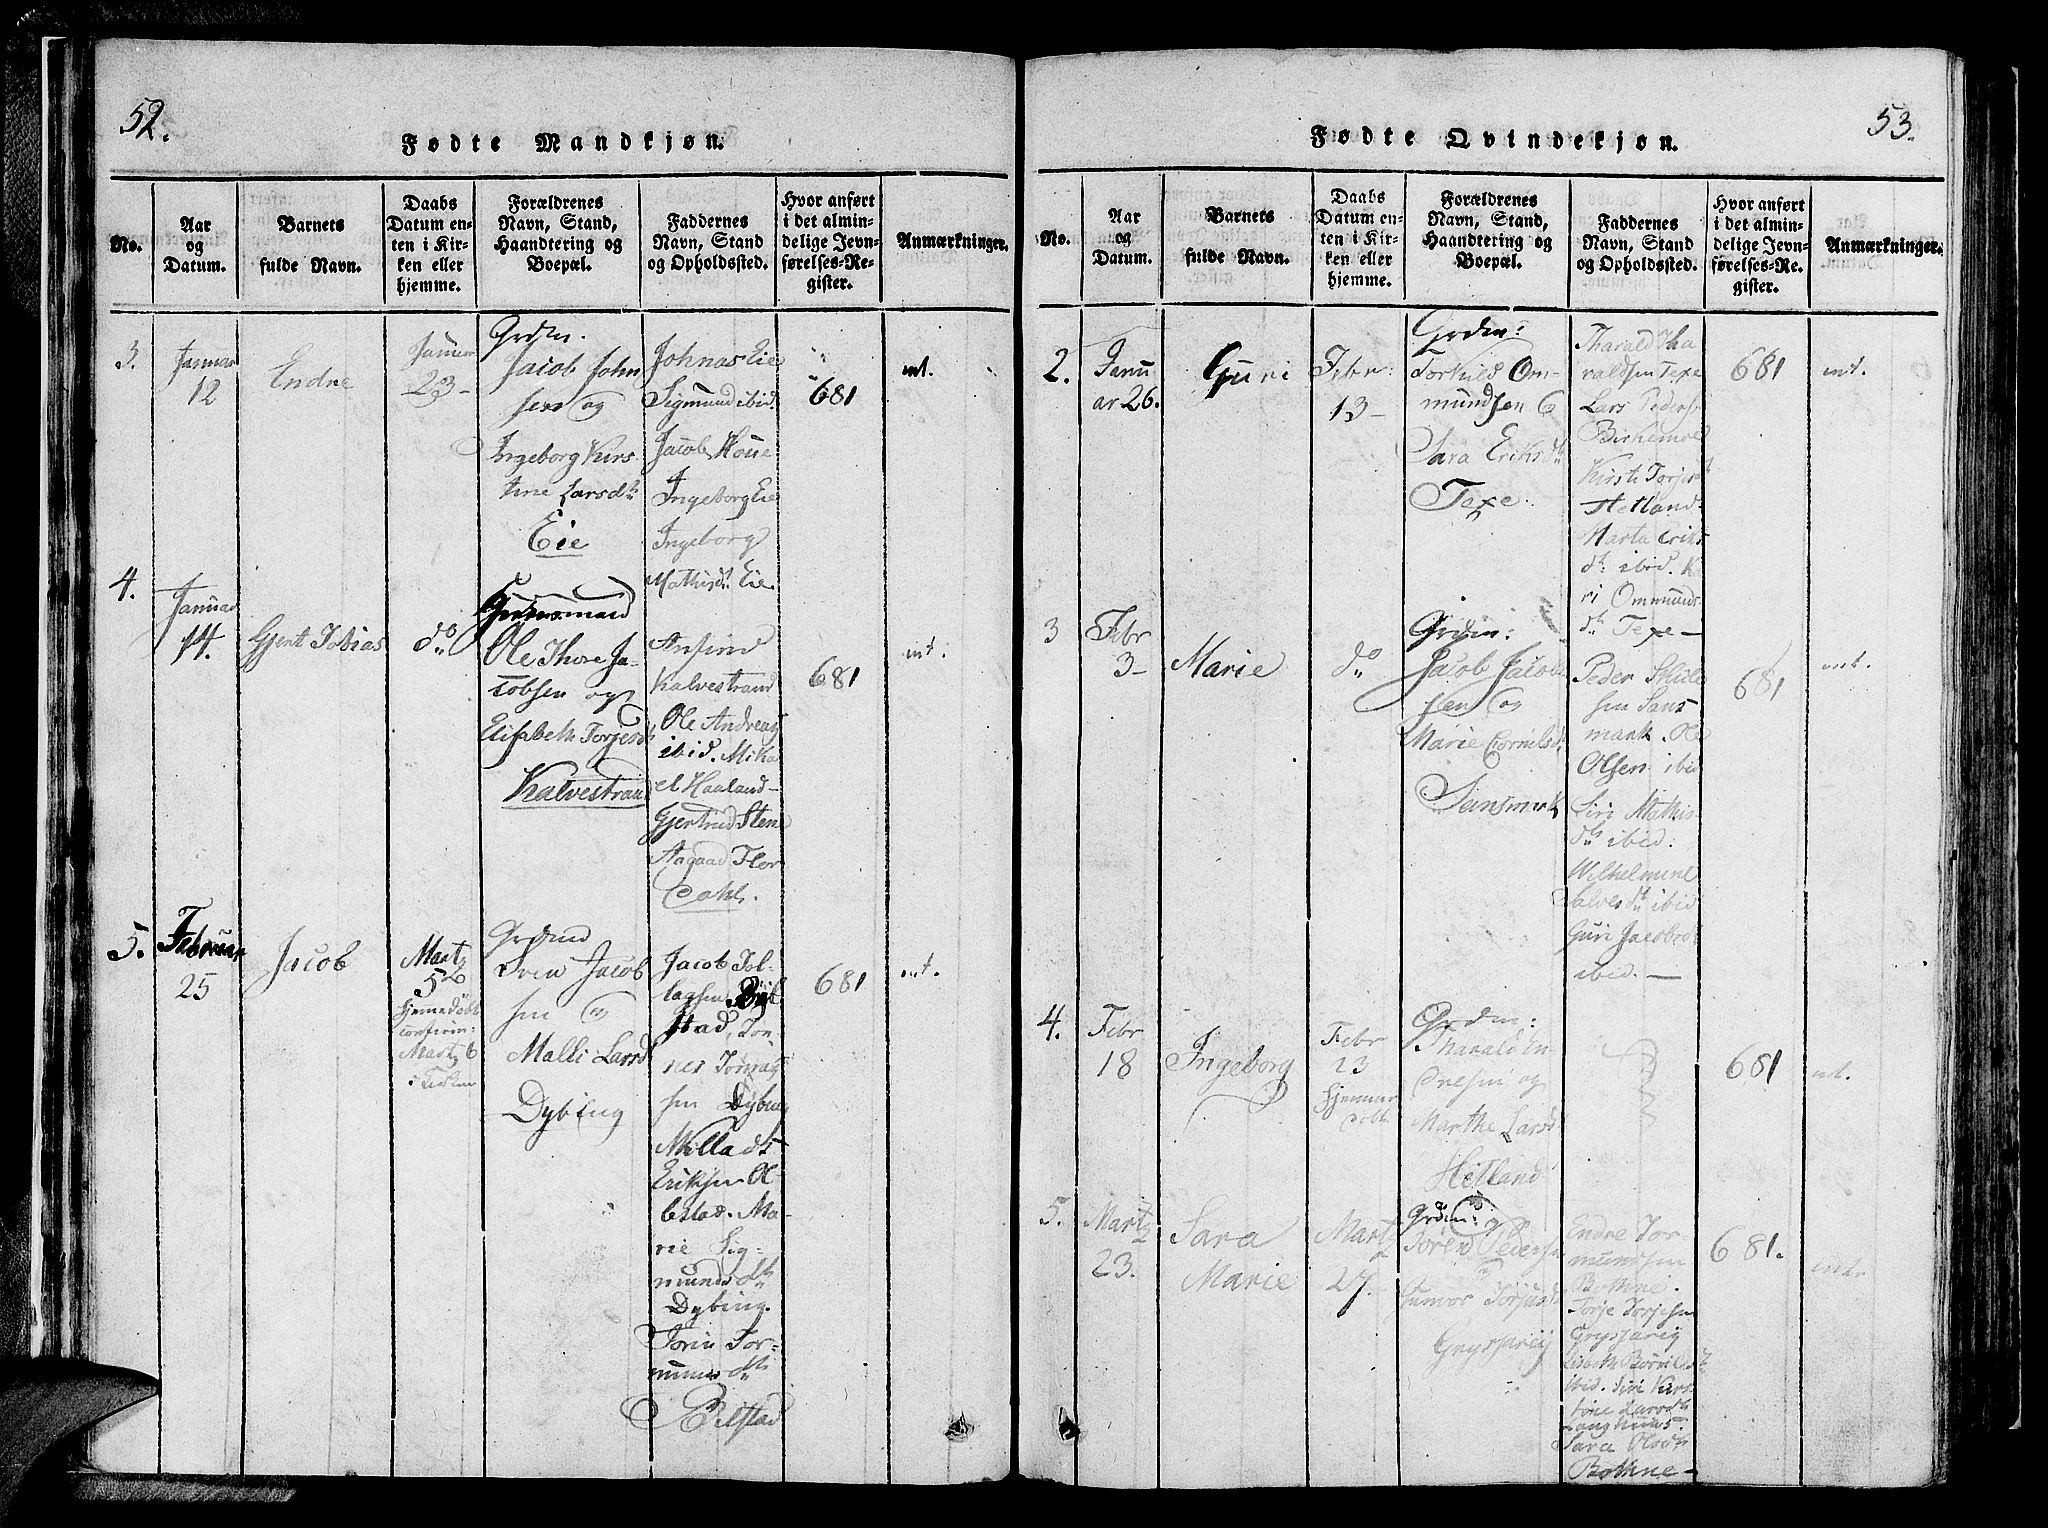 52.
Fødte Mandkjøn.
No.
Aar
og
Datum.
Barnets
fulde Navn.
Daabs
Datum en-
ten i Kir-
ken eller
hjemme.
Forældrenes
Navn, Stand,
Haandtering og
Boepæl.
Faddernes
Navn, Stand
og Opholdssted.
Hvor anført
i det almin-
delige Jevn-
førelses-Re-
gister.
Anmærkninger.
3.
Januar
12
Endne
Januar
23-
Grdm.
Jacob John
sen og
Ingeborg Kirs
tine Larsdt
Eie
Johnas Eie
Sigmund ibid.
Jacob Houe
Ingeborg Eie
Ingeborg
Mathisdt Eie
681
nt.
4.
Januar
14.
Gjert Tobias
do
Ole Thore Ja-
cobsen og
Elisabeth Torjesdt
Kalvestrand
Anfind
Kalvestrand
Ole Andreas
ibid. Mika
el Haaland-
Gjertrud Stene
Aagaad Flor
Dahl.
681
nt.
5.
Februar
25
Jacob
Martz
5te
Hjemedøbt
confirm:
Martz 6
Grdmd
Sven Jacob
sen og
Malli Larsd
Dybing
Jacob Tol-
lagsen Byl
stad, Ton-
nes Tønnes
sen Dybing
Milla dt
Eriksen Ol
bestad. Ma-
rie Sig-
munds dt
Dybing.
Torin Tor-
munds dt
Bilstad
681
nt.
53.
Fødte Qvindekjøn.
No.
Aar
og
Datum.
Barnets
fulde Navn.
Daabs
Datum en-
ten i Kir-
ken eller
hjemme.
Forældrenes
Navn, Stand,
Haandtering og
Boepæl.
Faddernes
Navn, Stand
og Opholdssted.
Hvor anført
i det almin-
delige Jevn-
førelses-Re-
gister.
Anmærkninger.
2.
Janu
ar 26.
Guri
Febr:
13-
Grdm:
Torkild Om-
mundsen &
Sara Eriksdt
Texe.
Tharald Tha
raldsen Texe
Lars Pedersen
Birkemoe
Kirsti Torjesdt
Hetland.
Marta Eriks
dt: ibid. Ka
ri Ommunds
dt: Texe-
681
nt.
3
Febr
3-
Marie
do
Grdm:
Jacob Jacob
sen og
Marie Cornelsdt
Sansmark
Peder Skiele
sen Sans
mark. Ole
Olsen ibid
Siri Mathis-
dt ibid:
Wilhelmine
Salvesdt ibid
Guri Jacobsdt
ibid. -
681
nt.
4.
Febr
18
Ingeborg
Febr
23
Hjemme
døbt
Grdm:
Tharald En-
dresen og
Marthe Larsd
Hetland
681
nt.
5.
Martz
23.
Sara
Marie
Martz
27.
Grdm:
Søren Pedersen
Gunvor Torjusdt
Grysfareij
Endre Tor-
mundsen
Bothne.
Torje Torjesen
Grysfareij
Lisbeth Børvilsdt
ibid. Siri Kirs
tine Larsdt
Langhuus.
Sara Olsdt
Bothne-
681.
nt.